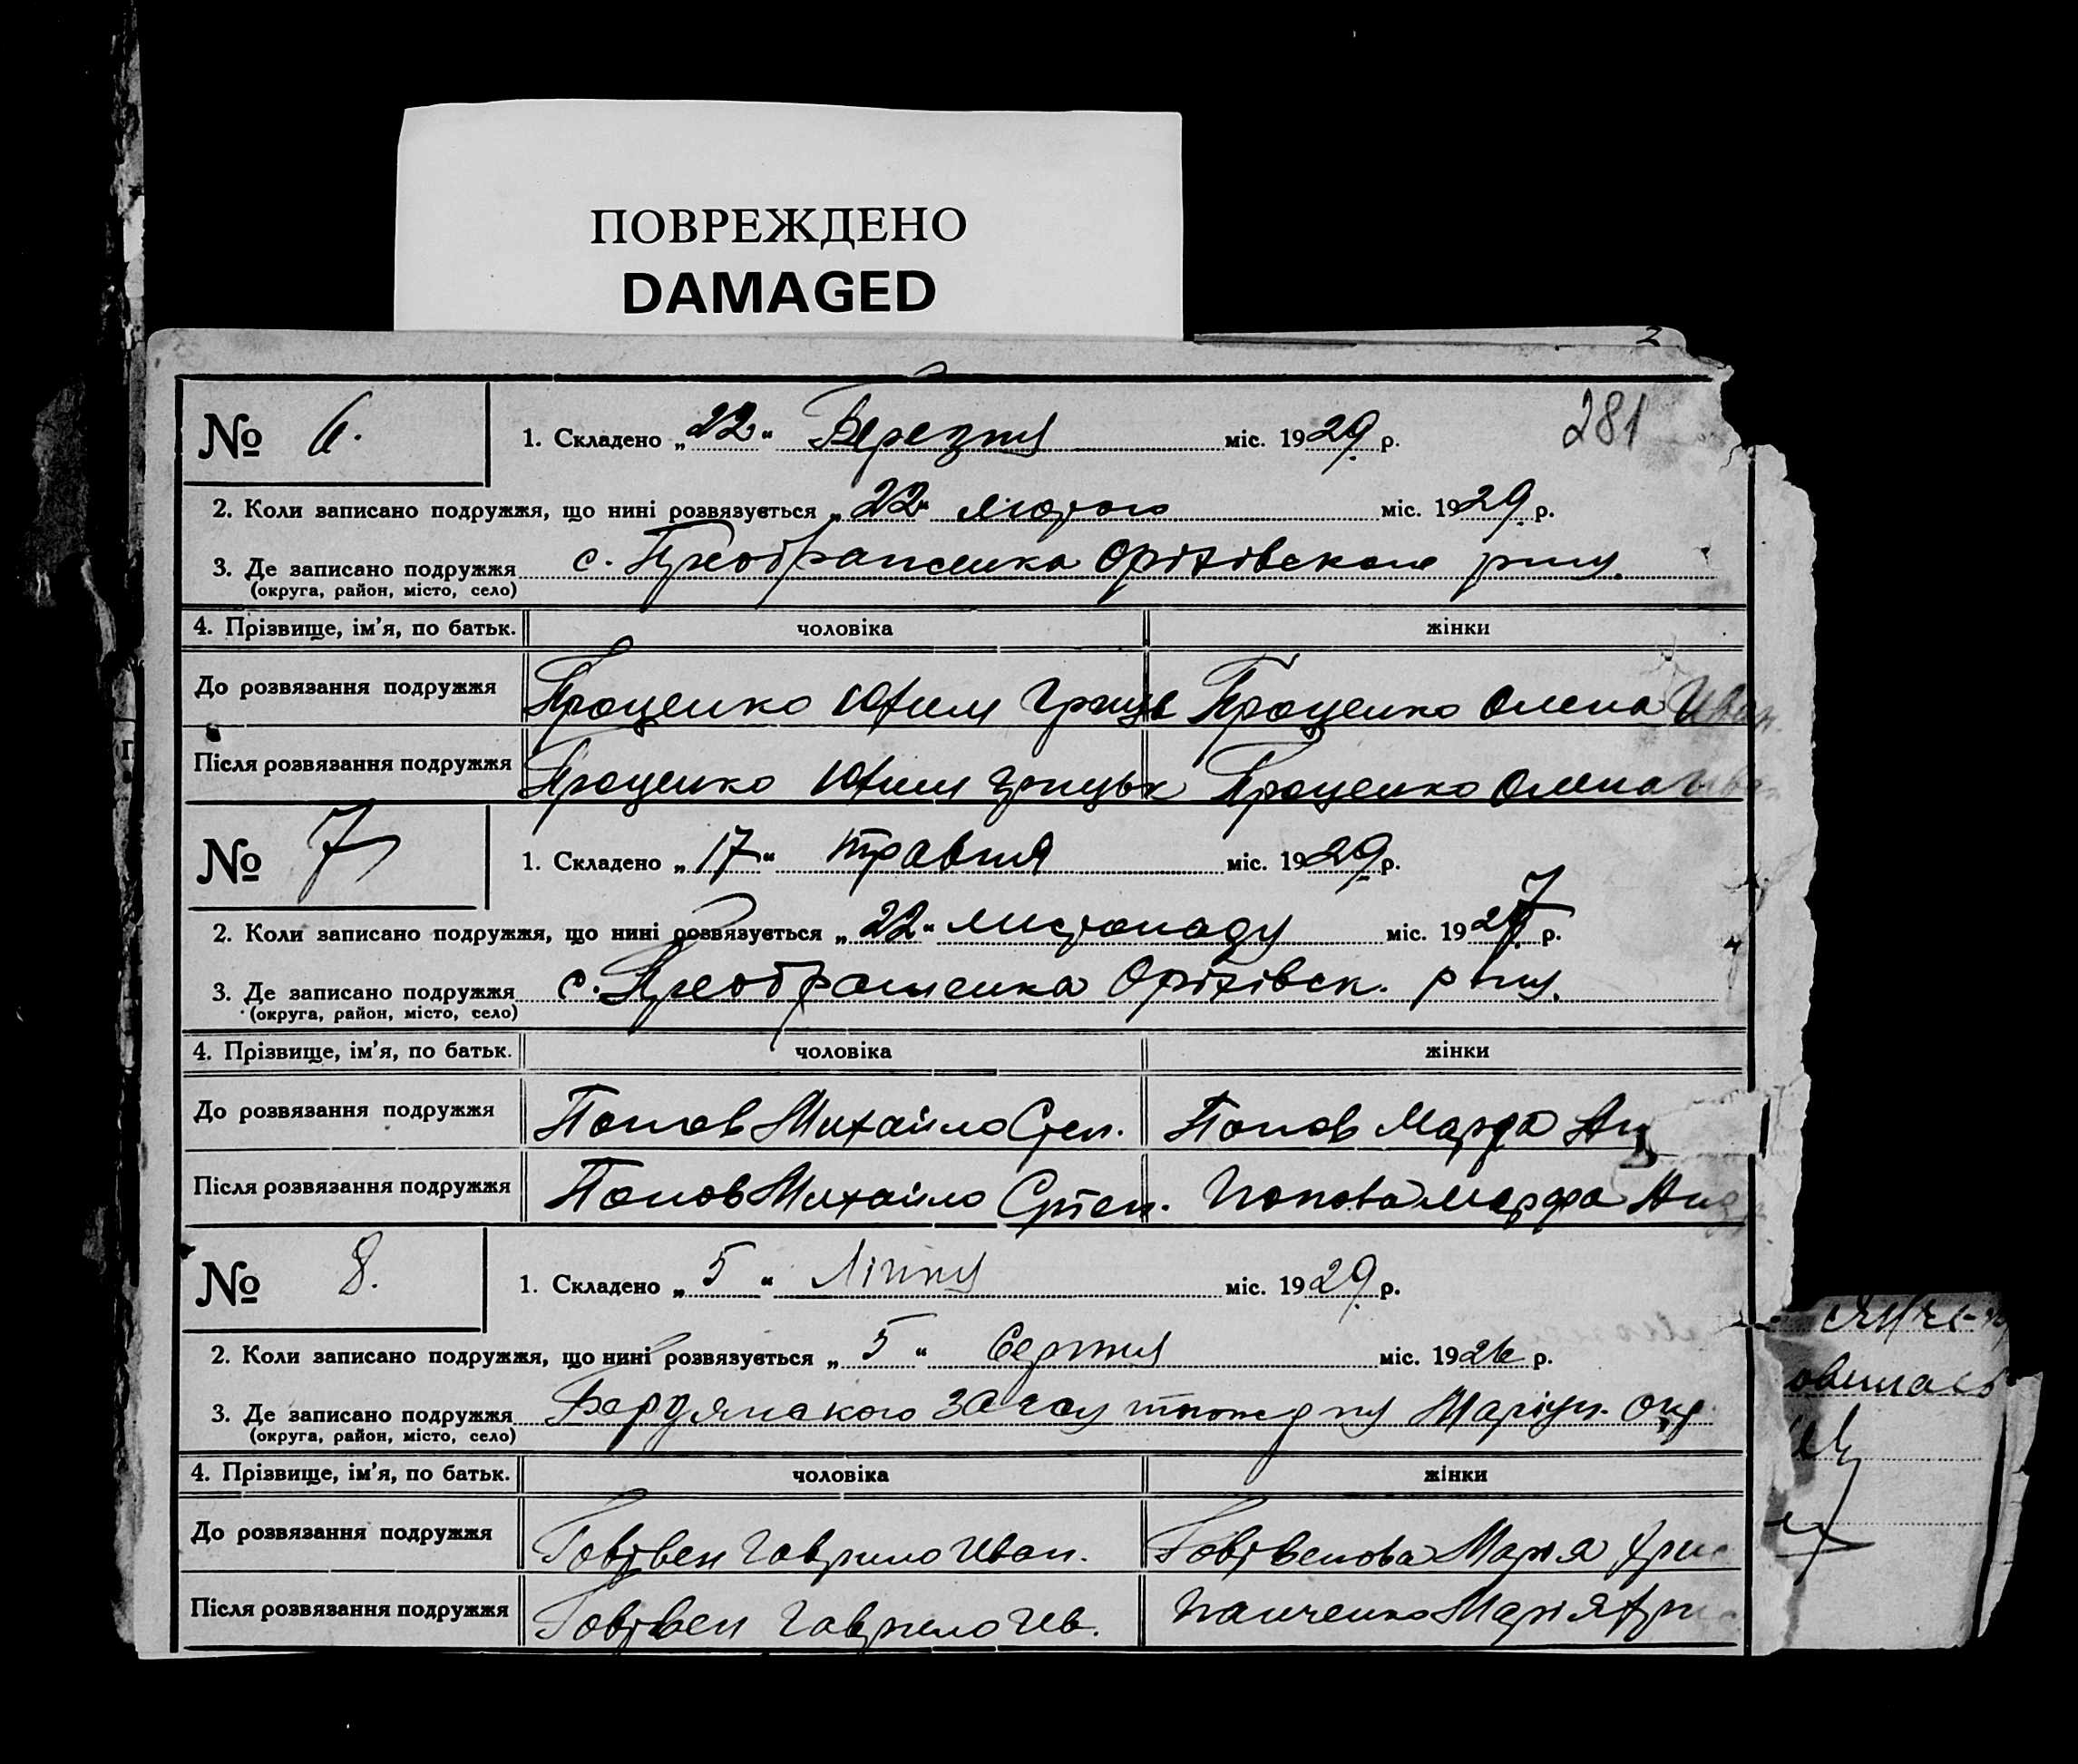 2
ПОВРЕЖДЕНО
DAMAGED
281
№ 6. 1. Складено „22“ Березня міс. 1929 р.
2. Коли записано подружжя, що нині розвязується „22“ лютого міс. 1929 р.
3. Де записано подружжя с. Преображенка Оріхівського рну.
(округа, район, місто, село)
4. Прізвище, ім'я, по батьк. чоловіка жінки
До розвязання подружжя Проценко Юхим Гриць Проценко Олена Иван.
Після розвязання подружжя Проценко Юхим Грицьк Проценко Олена Иван
№ 7 1. Складено „17“ травня міс. 1929 р.
2. Коли записано подружжя, що нині розвязується „22“ листопаду міс. 1927 р.
3. Де записано подружжя с. Преображенка Оріхівск. рну.
(округа, район, місто, село)
4. Прізвище, ім'я, по батьк. чоловіка жінки
До розвязання подружжя Попов Михайло Степ. Попов Марфа Анд
Після розвязання подружжя Попов Михайло Степ. Попова Марфа Анд
№ 8. 1. Складено „5“ Ліпня міс. 1929 р.
2. Коли записано подружжя, що нині розвязується „5“ Серпня міс. 1926 р.
3. Де записано подружжя Бердянського ЗАГСу Маріуп. окр.
(округа, район, місто, село)
4. Прізвище, ім'я, по батьк. чоловіка жінки
До розвязання подружжя Гаврило Иван. Марія
Після розвязання подружжя Гаврило Ив. Панченко Марія